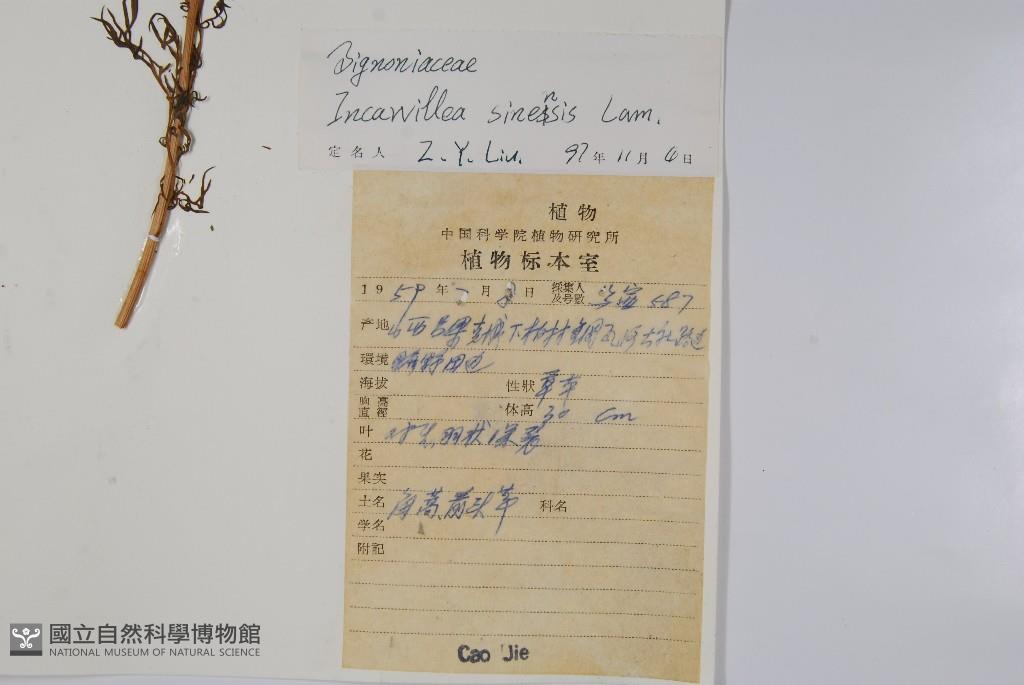 Bignoniaceae
Incarvillea sinensis Lam.
定名人 Z. Y. Liu. 97年11月6日
植物
中国科学院植物研究所
植物标本室
1959年7月8日 採集人及号數 587
产地 山西
環境 田边
海拔 性狀 草本
胸高直徑 体高 30 cm
叶 对生,羽状深裂
花
果实
土名 角蒿,箭头草 科名
学名
附記
Cao Jie
國立自然科學博物館
NATIONAL MUSEUM OF NATURAL SCIENCE